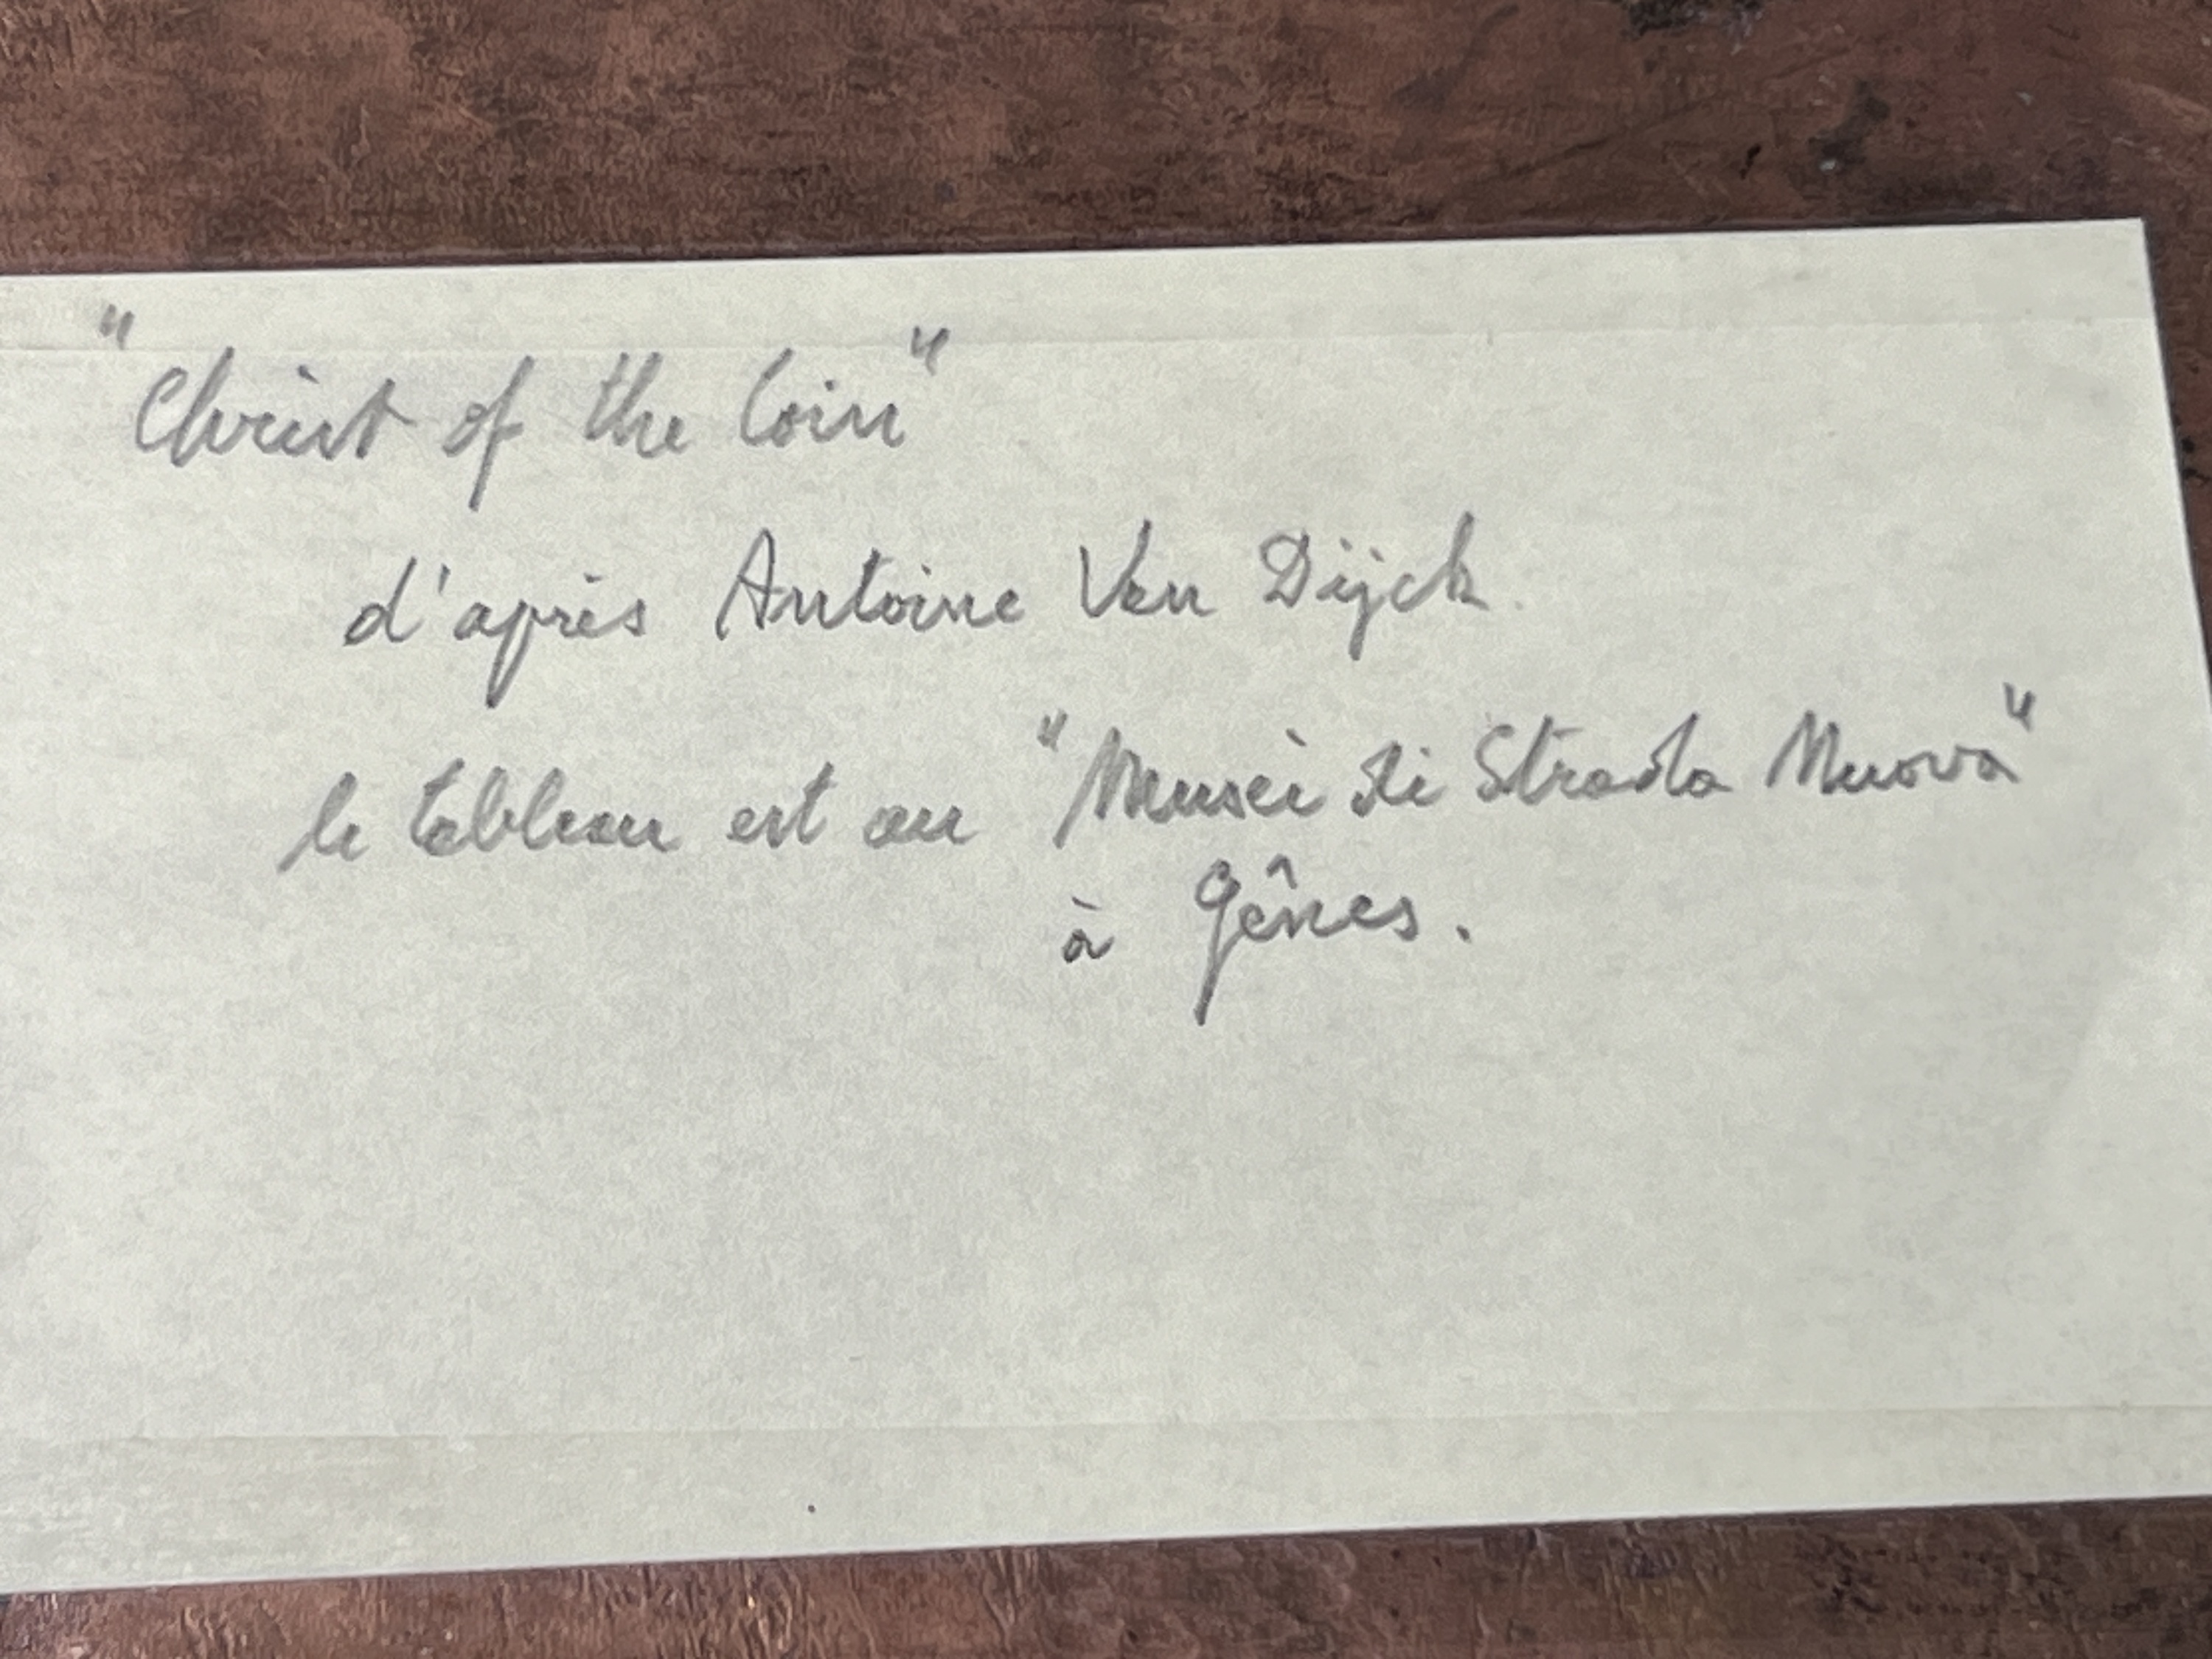 "Christ of the Coin"
d'après Antoine Van Dijck.
le tableau est au "Musei di Strada Nuova"
à Gênes.